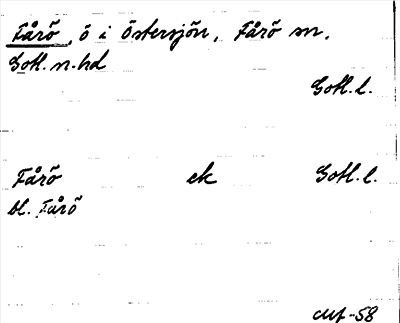 Fårö, ö i Östersjön, Fårö sn,
Gotl. n. hd
Gotl. l.
Fårö ek Gotl. l.
bl. Fårö
-58